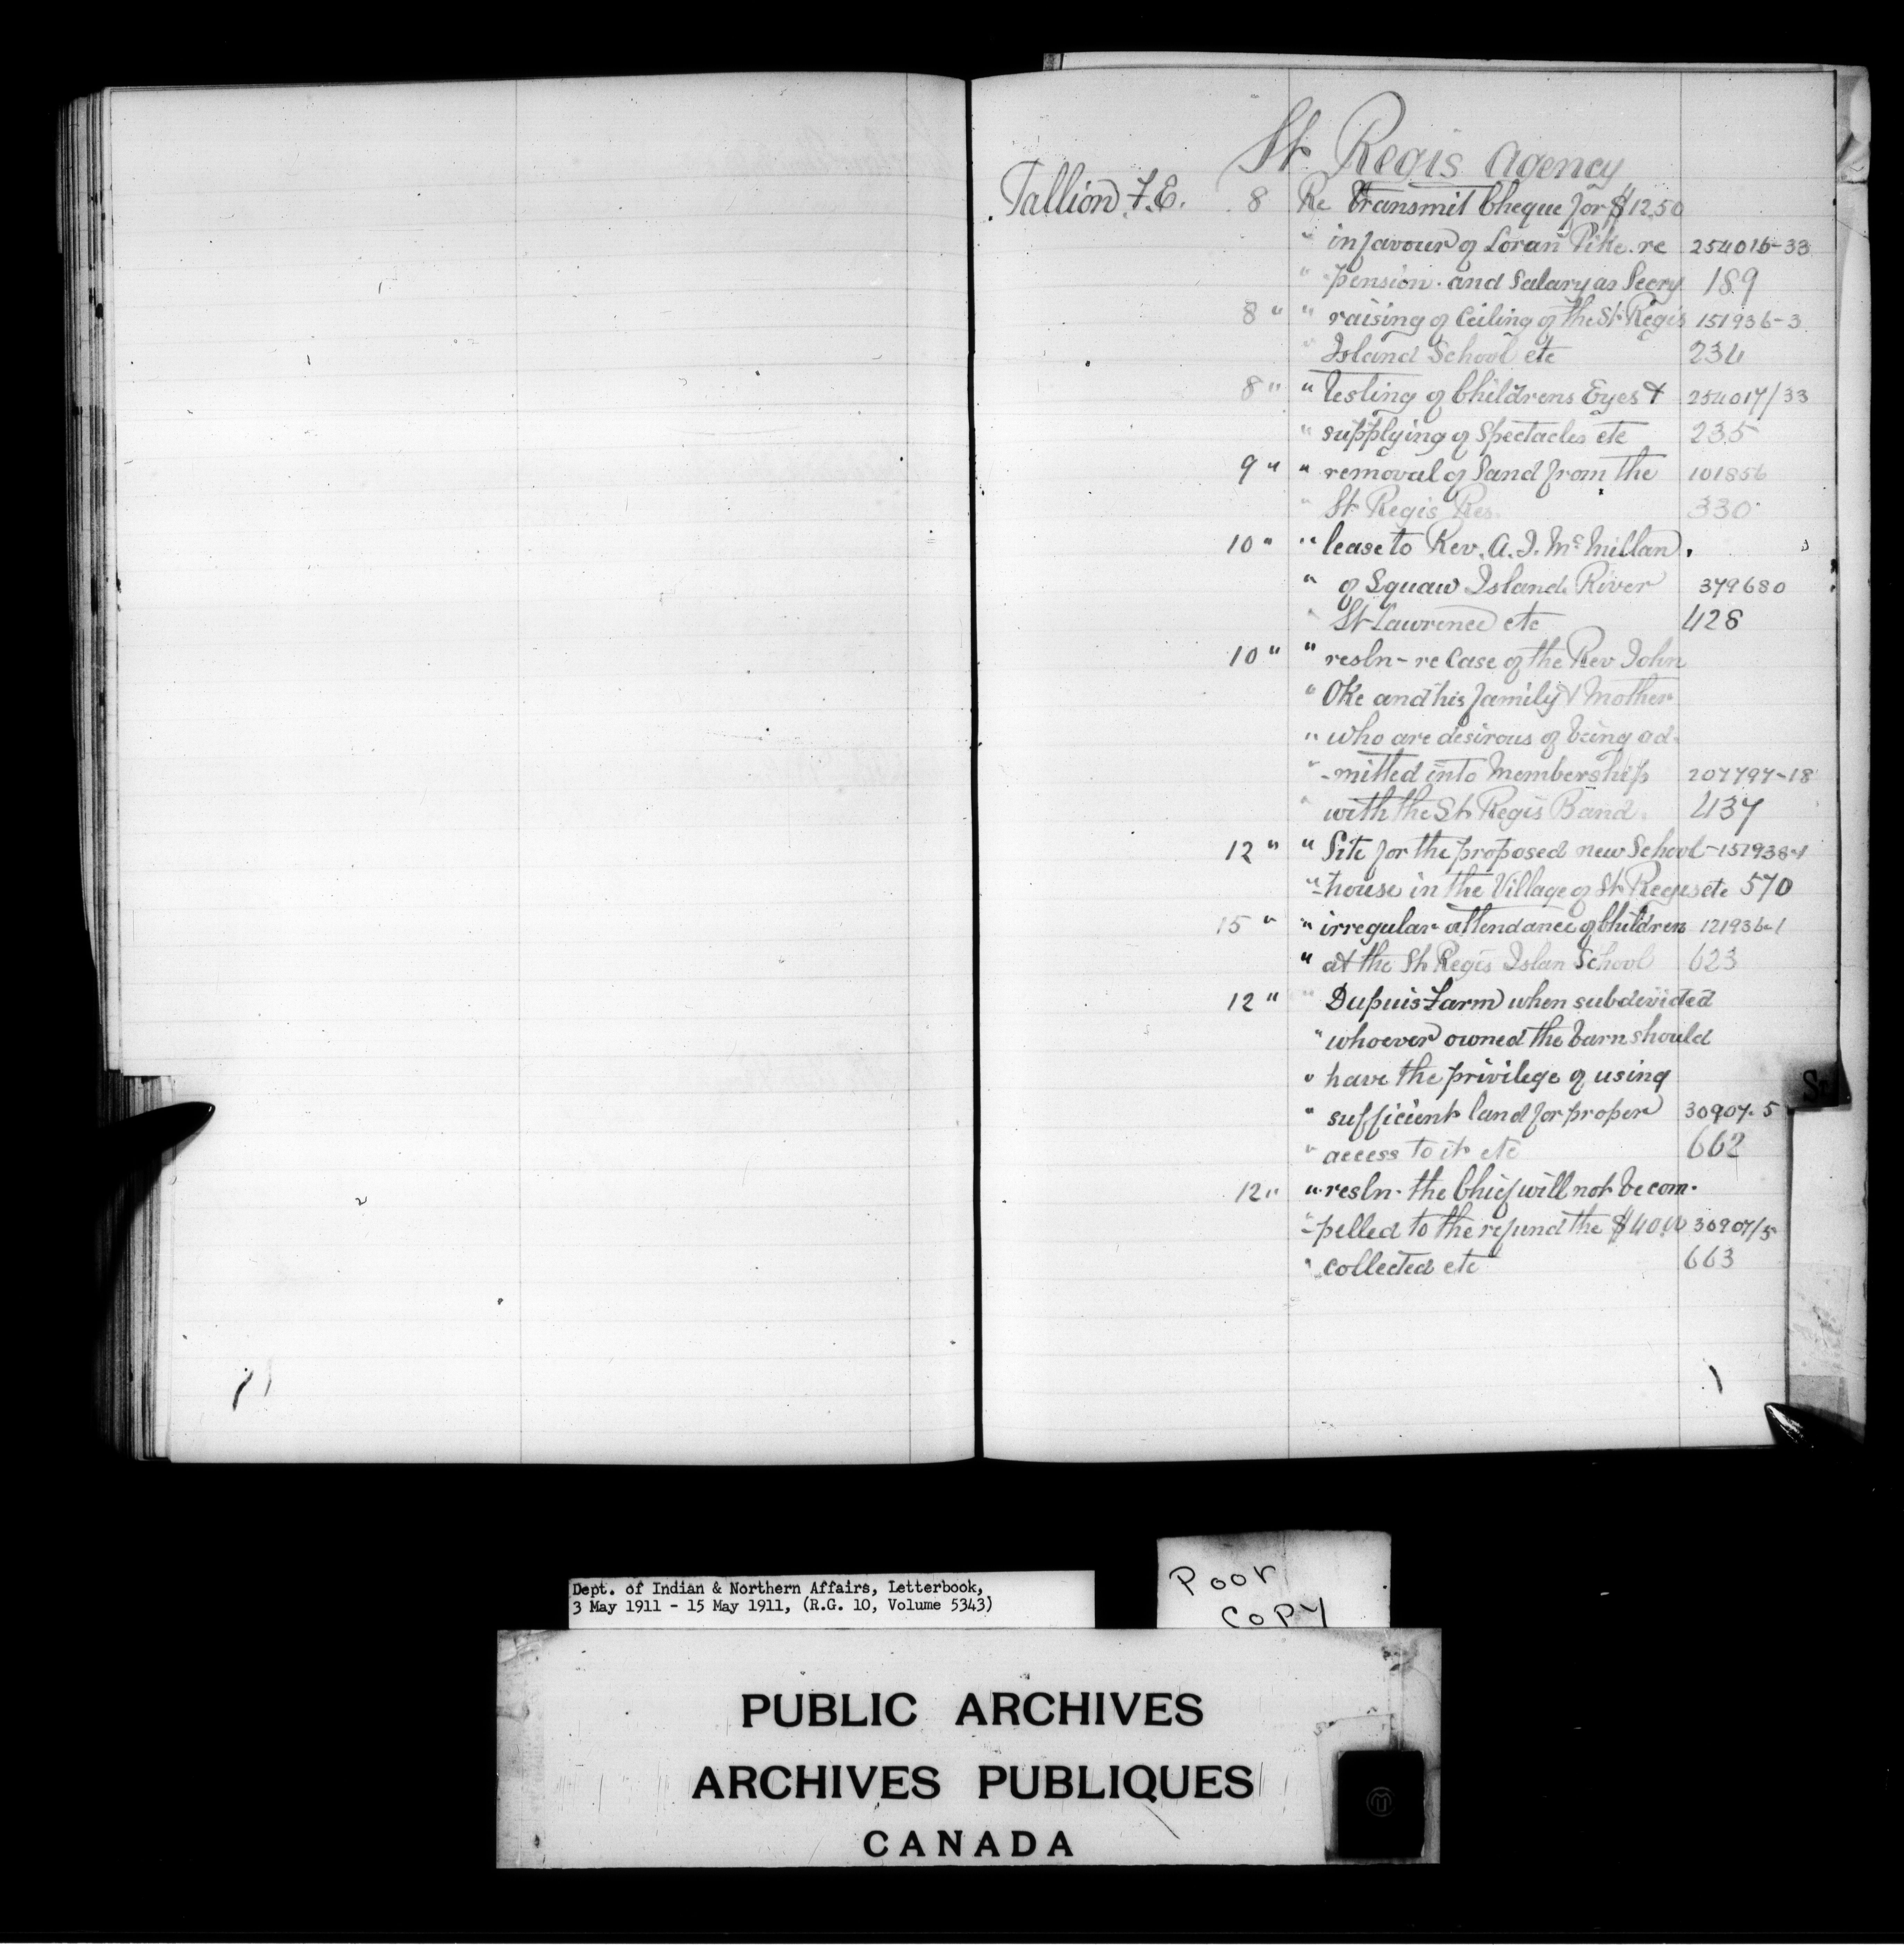 St Regis Agency
Tallion F.E. 8 Re transmit Cheque for $12.50
" in favour of Loran Pike. re 254016-33
" pension. and Salary as Secry 189
8 " " raising of Ceiling of the St Regis 151936-3
" Island School etc 234
8 " " testing of Childrens Eyes & 254017/33
" supplying of Spectacles etc 235
9 " " removal of Sand from the 101856
" St Regis Res. 330
10 " " lease to Rev. A. J. McMillan.
" of Squaw Island River 379680
" St Lawrence etc 428
10 " " resln - re Case of the Rev John
" Oke and his family & Mother
" who are desirous of being ad-
" -mitted into Membership 207797-18
" with the St Regis Band. 437
12 " " Site for the proposed new School - 151938-1
" -house in the Village of St Regis etc 570
15 " " irregular attendance of Children 121936-1
" at the St Regis Islan School 623
12 " " Dupuis Farm when subdivided
" whoever owned the barn should
" have the privilege of using
" sufficient land for proper 30907-5
" access to it etc 662
12 " " resln - the Chief will not be com-
" -pelled to the refund the $40.00 30907/5
" collected etc 663
St
Dept. of Indian & Northern Affairs, Letterbook,
3 May 1911 - 15 May 1911, (R.G. 10, Volume 5343)
Poor
Copy
PUBLIC ARCHIVES
ARCHIVES PUBLIQUES
CANADA